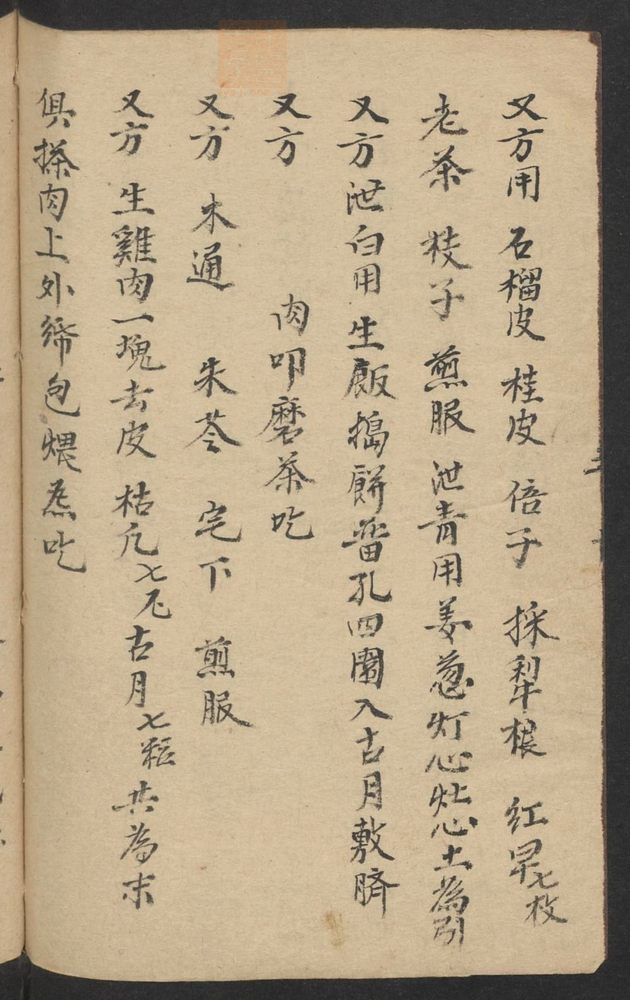 又方用 石榴皮 桂皮 倍子 採犁根 紅早七枚
老茶 枝子 煎服 泄青用姜葱灯心灶心土為引
又方泄白用 生飯搗餅畨孔四圍入古月敷臍
又方 肉叩磨茶吃
又方 木通 朱苓 宅下 煎服
又方 生雞肉一塊去皮 枯凡七尺古月七粒共為末
俱搽肉上外綿包煨熟吃